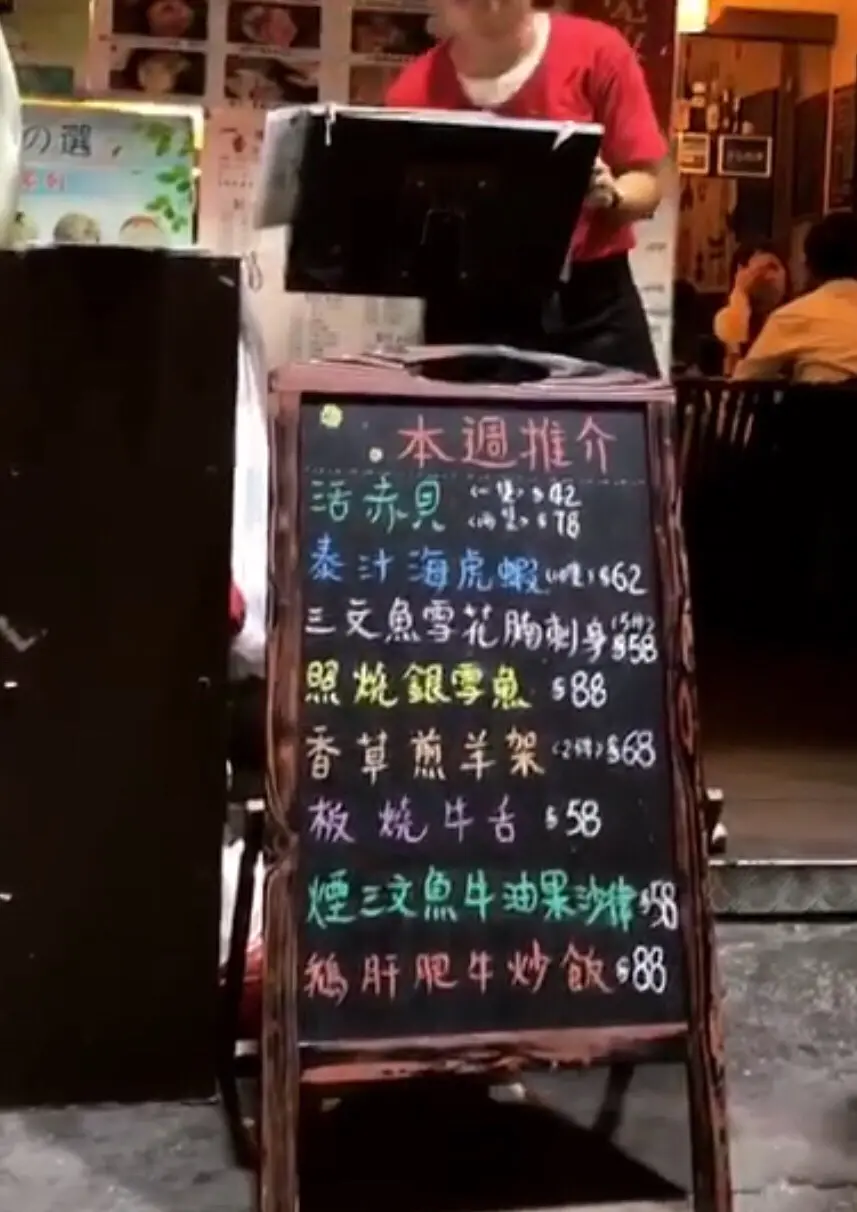 の選
本週推介
活赤貝 (一隻) $42
(兩隻) $78
泰汁海虎蝦 (10隻) $62
三文魚雪花腩刺身 (5件) $58
照燒銀雪魚 $88
香草煎羊架 (2件) $68
板燒牛舌 $58
煙三文魚牛油果沙律 $58
鵝肝肥牛炒飯 $88